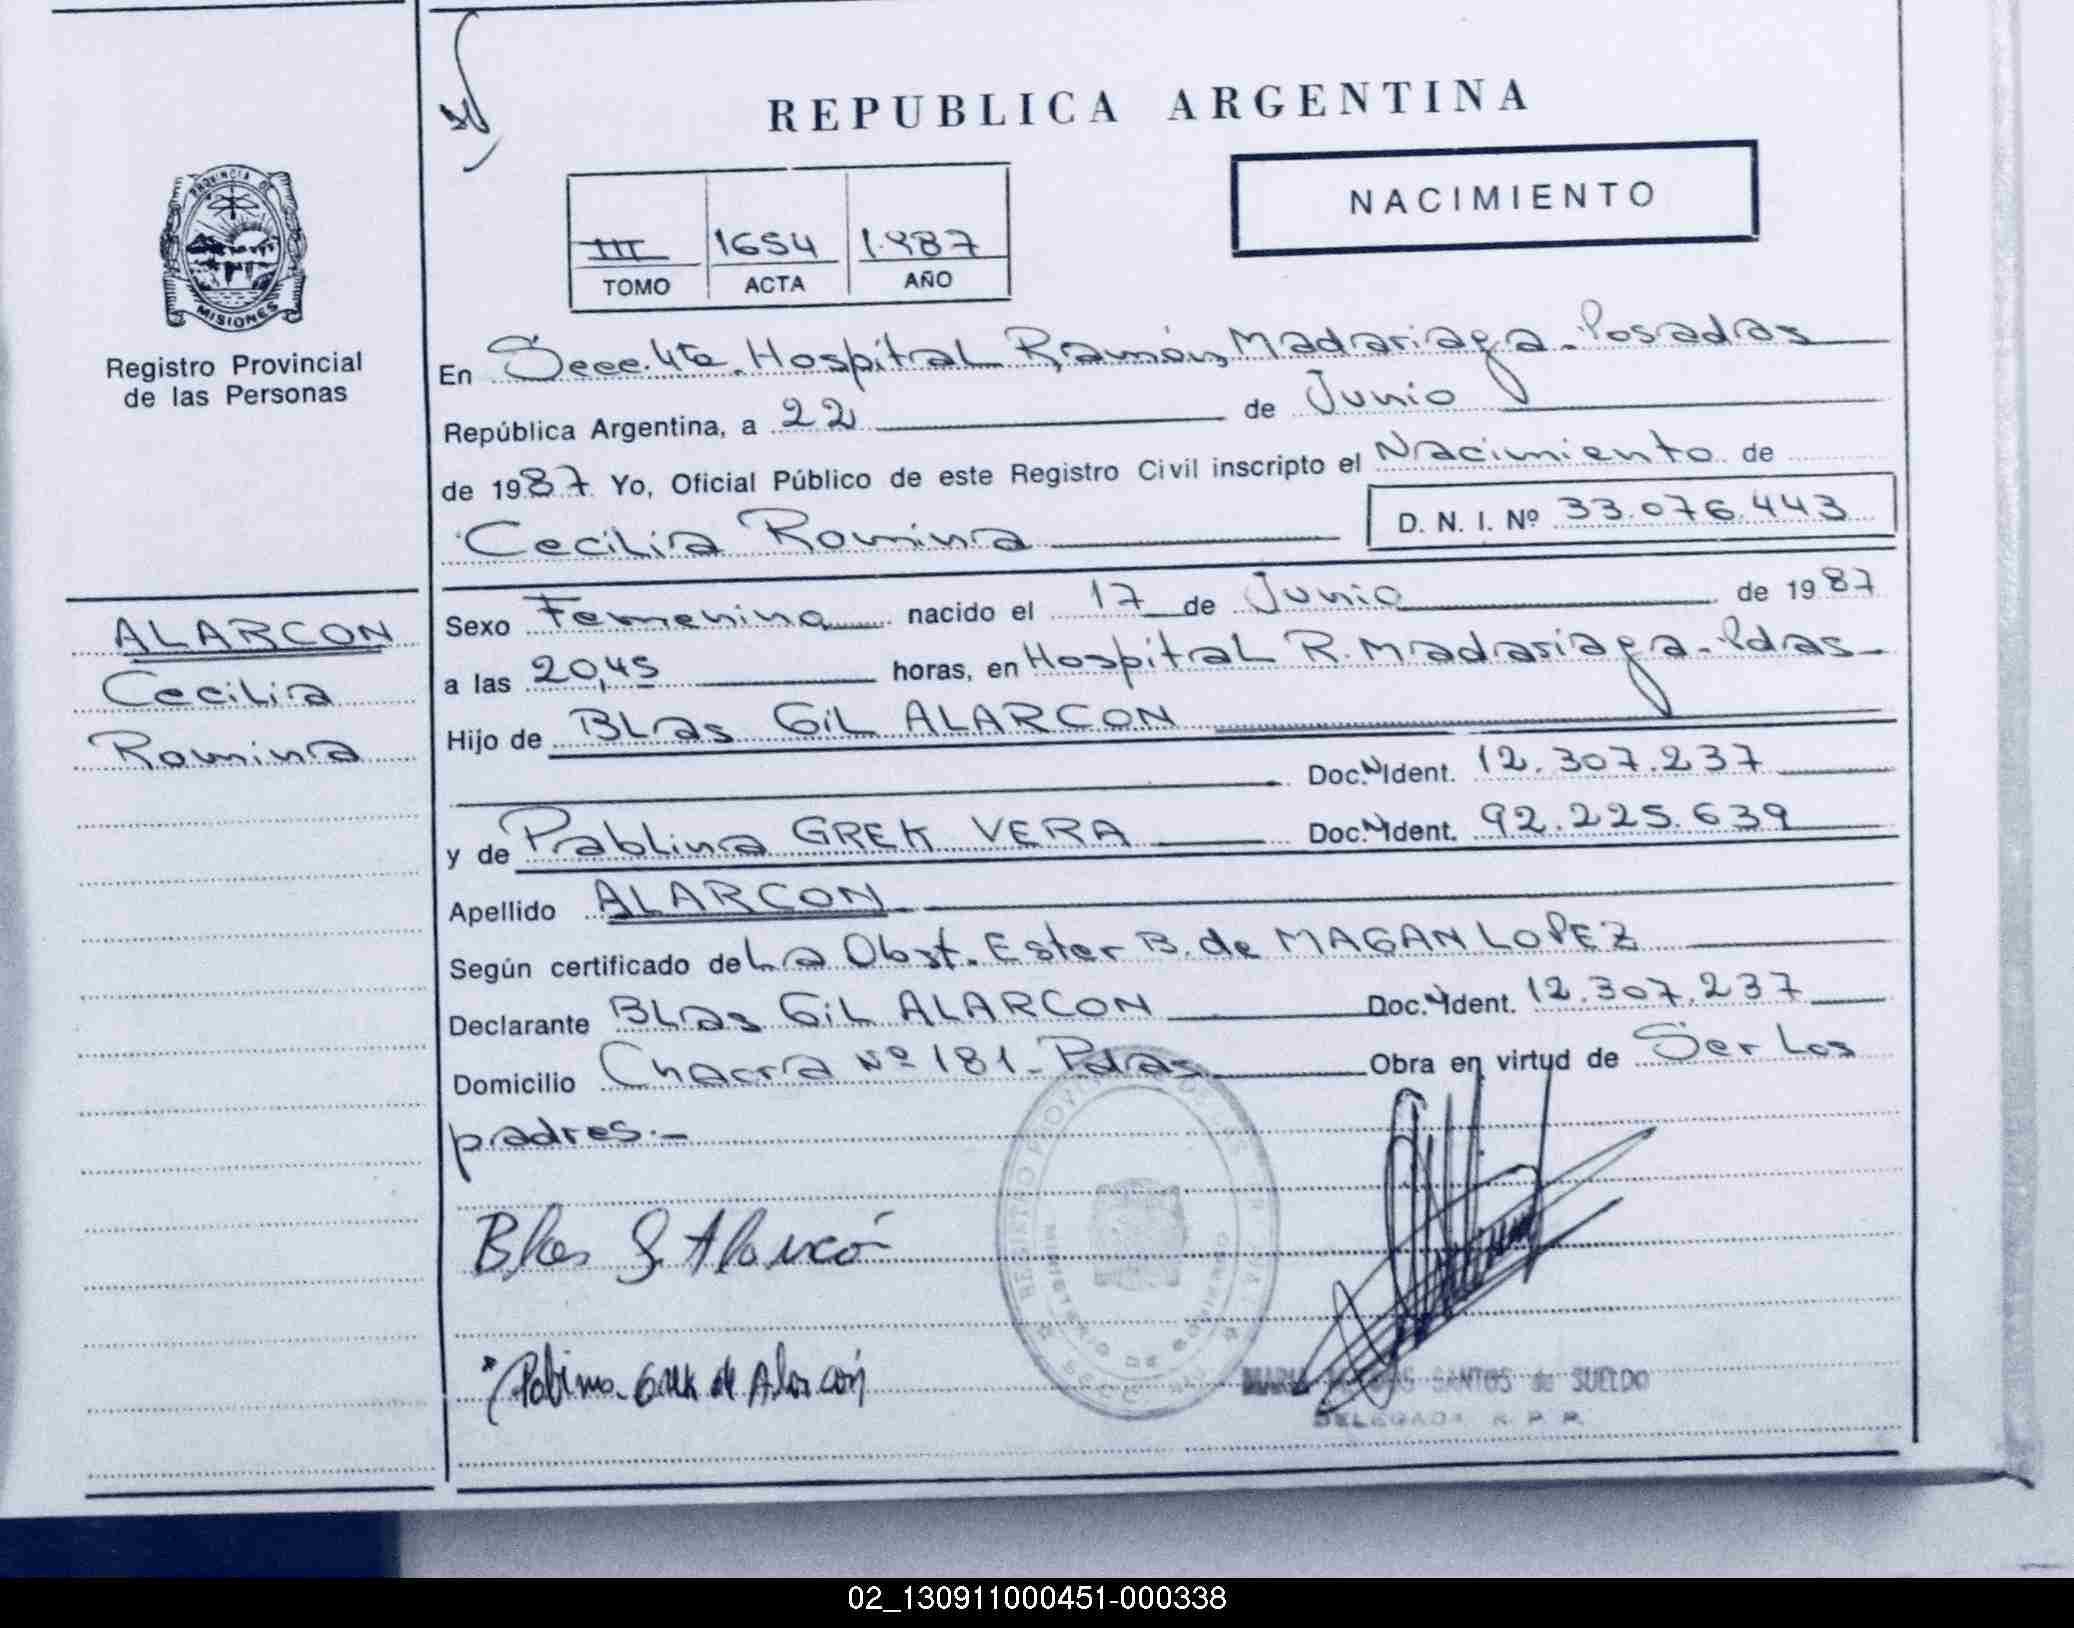 REPUBLICA ARGENTINA
NACIMIENTO
III 1654 1.987
TOMO ACTA AÑO
PROVINCIA DE
MISIONES
Registro Provincial
de las Personas
En Secc. 4ta. Hospital Ramón Madariaga - Posadas
República Argentina, a 22 de Junio
de 1987 Yo, Oficial Público de este Registro Civil inscripto el Nacimiento de
Cecilia Romina D. N. I. Nº 33.076.443
ALARCON
Cecilia
Romina
Sexo Femenino nacido el 17 de Junio de 1987
a las 20,45 horas, en Hospital R. Madariaga - Pdas -
Hijo de Blas Gil ALARCON
Doc. Ident. 12.307.237
y de Pablina GREK VERA Doc. Ident. 92.225.639
Apellido ALARCON
Según certificado de La Obst. Ester B. de MAGAN LOPEZ
Declarante Blas Gil ALARCON Doc. Ident. 12.307.237
Domicilio Chacra Nº 181 - Pdas Obra en virtud de Ser Los
padres.-
Blas G. Alarcón
Grek de Alarcón
REGISTRO MINISTERIO DE GOBIERNO
SANTOS de SUELDO
DELEGADA R. P. P.
02_130911000451-000338